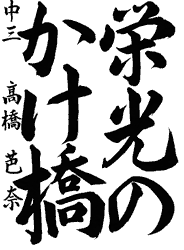 栄光の
かけ橋
中三 高橋 芭奈